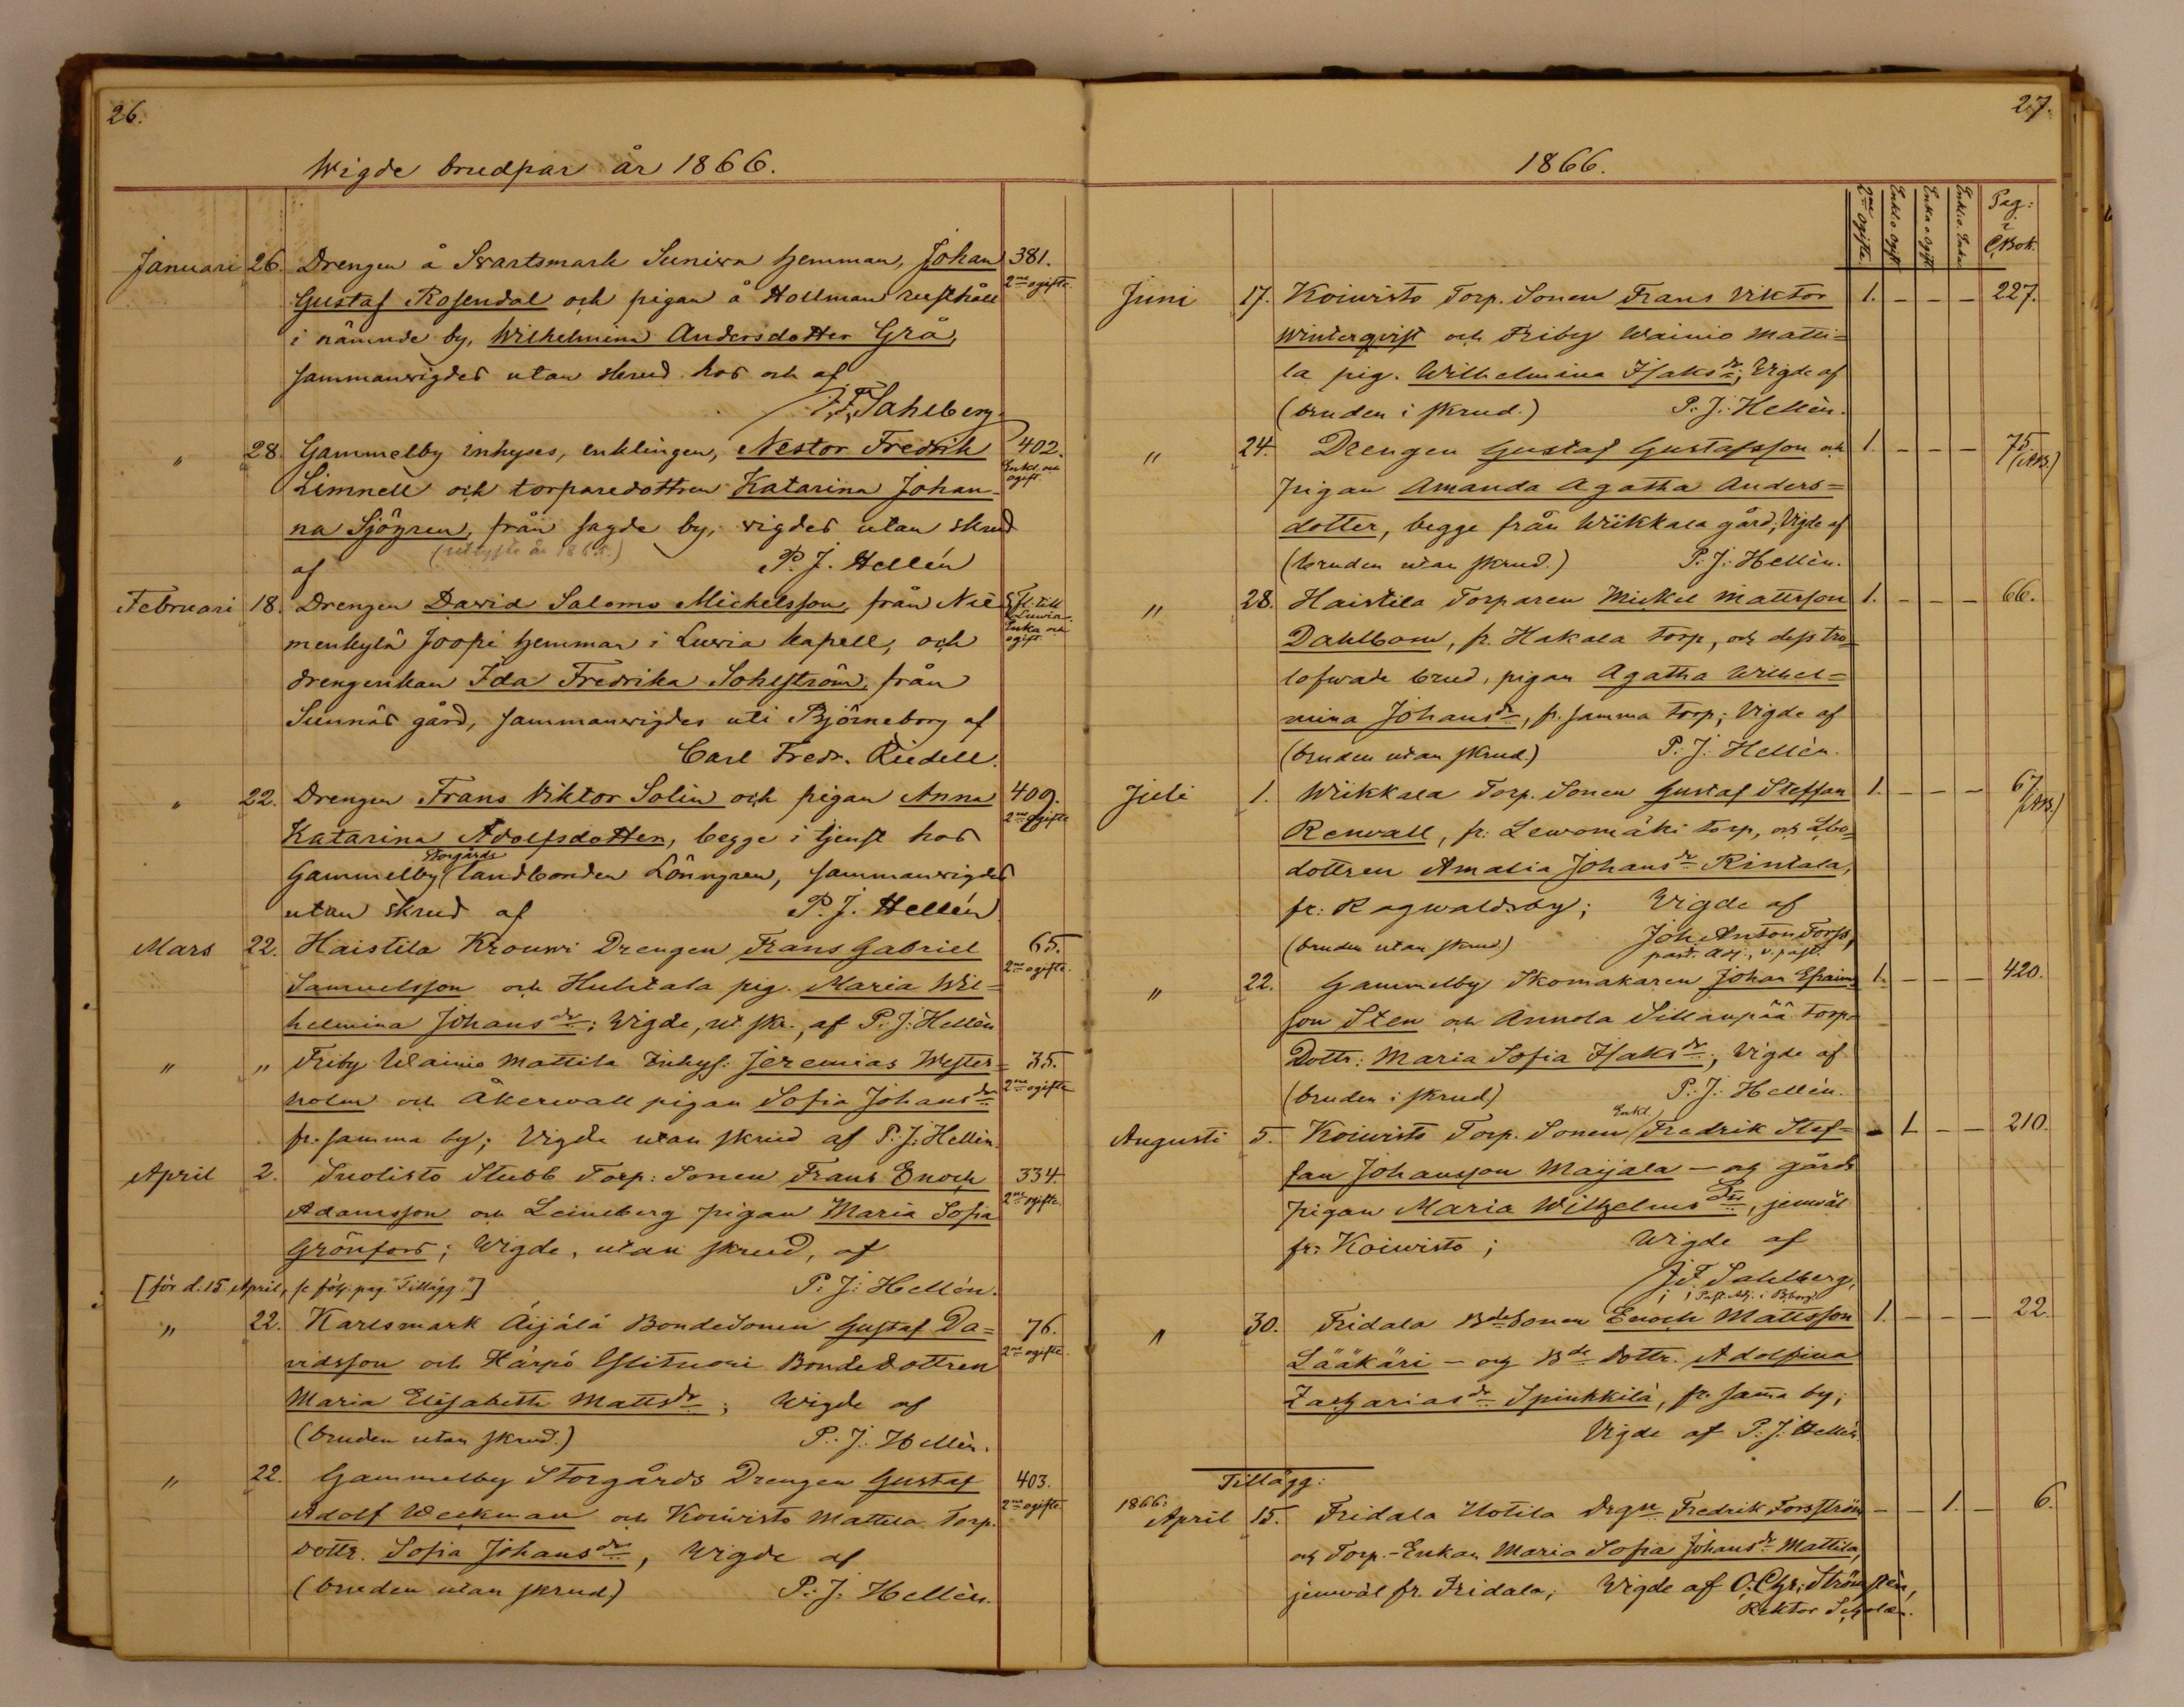 26.
Wigde brudpar år 1866.
Januari 26. Drengen å Svartsmark Suniwa hemman, Johan 381.
Gustaf Rosendal och pigan å Hollman rusthåll 2ne ogifte
i nämnde by, Wilhelmina Andersdotter Grå,
sammanvigdes utan skrud hos och af
F. F. Sahlberg
" 28. Gammelby inhyses, enklingen, Nestor Fredrik 402.
Limnell och torparedottren Katarina Johan- Enkl. och ogift.
na Sjögren, från sagde by, vigdes utan skrud
af P. J. Hellén
Februari 18. Drengen David Salomo Mickelsson, från Nie- Fl. till Luvia.
menkylä Joopi hemman i Luvia kapell, och Enka och ogift.
drengenkan Ida Fredrika Sohlström, från
Sunnäs gård, sammanvigdes uti Björneborg af
Carl Fredr. Riedell.
" 22. Drengen Frans Viktor Solin och pigan Anna 409.
Katarina Adolfsdotter, begge i tjenst hos 2ne ogifte
Gammelby Storgårds landbonden Lönngren, sammanvigdes
utan skrud af P. J. Hellén
Mars 22. Haistila Krouvi Drengen Frans Gabriel 65.
Samuelsson och Huhtala pig. Maria Wil= 2ne ogifte.
helmina Johansdr; Vigde, ut. skr., af P. J: Hellén
" " Friby Wainio Mattila Inhys: Jeremias Wester= 35.
holm och Åkerwall pigan Sofia Johansdr 2ne ogifte
fr. samma by; Vigde utan skrud af P: J: Hellén.
April 2. Suolisto Stubb Torp: Sonen Frans Enoch 334.
Adamsson och Leineberg pigan Maria Sofia 2ne ogifte.
Grönfors; Wigde, utan skrud, af
[för d. 15 April, se följ. pag. "Tillägg"] P: J: Hellén.
" 22. Karlsmark Äijälä BondeSonen Gustaf Da= 76.
vidsson och Härpö Ylituori Bondedottren 2ne ogifte.
Maria Elisabeth Mattsdr; Wigde af
(bruden utan skrud.) P: J: Hellén.
" 22. Gammelby Storgårds Drengen Gustaf 403.
Adolf Weckman och Koivisto Mattila Torp. 2ne ogifte
dottr. Sofia Johansdr, Wigde af
(bruden utan skrud) P: J: Hellén.
27.
1866.
2ne ogifte. Enkl. o. Ogift Enka o. Ogift Enkl. o. Enka Pag: i C. Bok.
Juni 17. Koivisto Torp. Sonen Frans Viktor 1. – – – 227.
Winterqvist och Friby Wainio Matti=
la pig. Wilhelmina Isaksdr; Vigde af
(bruden i skrud.) P: J: Hellén.
" 24. Drengen Gustaf Gustafsson och 1. – – – 75.
pigan Amanda Agatha Anders=
dotter, begge från Wiikkala gård; Vigde af
(bruden utan skrud.) P: J: Hellén.
" 28. Haistila Torparen Mickel Mattsson 1. – – – 66.
Dahlbom, fr. Hakala torp, och dess tro=
lofvade brud, pigan Agatha Wilhel=
mina Johansdr, fr. samma torp; Vigde af
(bruden utan skrud.) P: J: Hellén.
Juli 1. Wiikkala Torp. Sonen Gustaf Steffan 1. – – – 67.
Renvall, fr: Lewomäki torp, och Lbo=
dottren Amalia Johansdr Rintala,
fr: Ragwaldsby; Vigde af
(bruden utan skrud) Joh. Anton Forss,
past. Adj., v. past.
" 22. Gammelby Skomakaren Johan Efraims 1. – – – 420.
son Sten och Annola Sillanpää torp.
Dottr: Maria Sofia Isaksdr; Vigde af
(bruden i skrud) P: J: Hellén.
Augusti 5. Koivisto Torp. Sonen Enkl. Fredrik Stef= – 1 – – 210.
fan Johansson Maijala – och gårds
pigan Maria Wilhelmsdr, jemväl
fr: Koivisto; Wigde af
J. F. Sahlberg,
Past. Adj. i B.borg.
" 30. Fridala Bde Sonen Enoch Mattsson 1. – – – 22.
Lääkäri – och Bde Dottr. Adolfina
Zachariasdr Spinkkilä, fr. sama by;
Vigde af P: J: Hellén
Tillägg:
1866: April 15. Fridala Uotila Drgn Fredrik Forsström – – 1. – 6.
och Torp.-Enkan Maria Sofia Johansdr Mattila,
jemväl fr. Fridala; Wigde af O. Chr: Strömsten,
Rektor Scholæ.